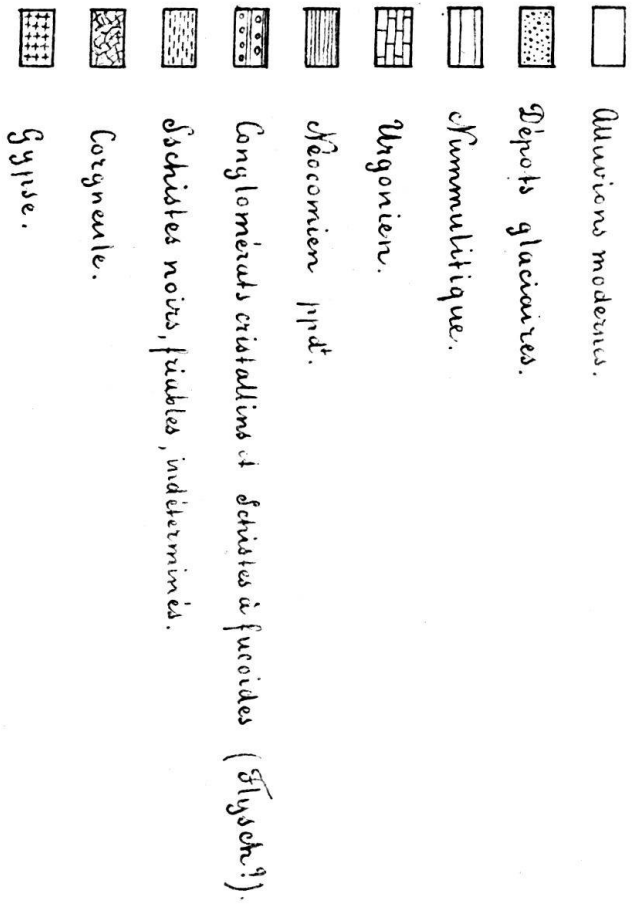 Alluvions modernes.
Dépots glaciaires.
Nummulitique.
Urgonien.
Néocomien ppdt.
Conglomérats cristallins et Schistes à fucoides (Flysch?).
Sschistes noirs, friables, indéterminés.
Corgneule.
Gypse.